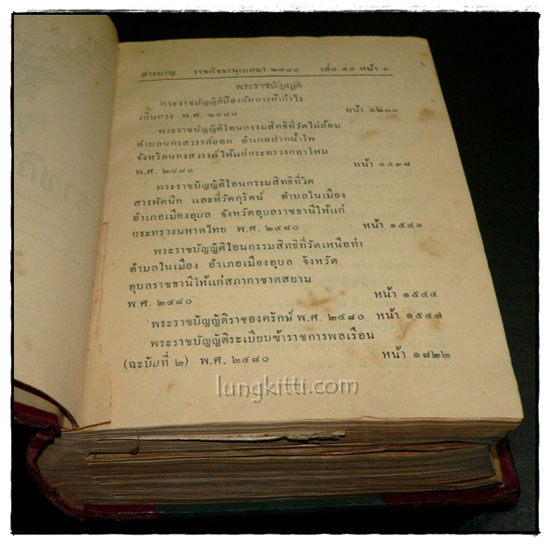 สารบาญ ราชกิจจานุเบกษา ๒๔๘๐ เล่ม ๕๔ หน้า ๑
พระราชบัญญัติ
พระราชบัญญัติป้องกันการค้ากำไร
เกินควร พ.ศ. ๒๔๘๐ หน้า ๑๒๓๐
พระราชบัญญัติโอนกรรมสิทธิที่วัดไผ่ล้อม
ตำบลนครสวรรค์ออก อำเภอปากน้ำโพ
จังหวัดนครสวรรค์ให้แก่กระทรวงกลาโหม
พ.ศ. ๒๔๘๐ หน้า ๑๕๓๗
พระราชบัญญัติโอนกรรมสิทธิที่วัด
สารพัดนึก และที่วัดกุรัตน์ ตำบลในเมือง
อำเภอเมืองอุบล จังหวัดอุบลราชธานีให้แก่
กระทรวงมหาดไทย พ.ศ. ๒๔๘๐ หน้า ๑๕๔๑
พระราชบัญญัติโอนกรรมสิทธิที่วัดเหนือท่า
ตำบลในเมือง อำเภอเมืองอุบล จังหวัด
อุบลราชธานีให้แก่สภากาชาดสยาม
พ.ศ. ๒๔๘๐ หน้า ๑๕๔๔
พระราชบัญญัติราชองครักษ์ พ.ศ. ๒๔๘๐ หน้า ๑๕๔๗
พระราชบัญญัติระเบียบข้าราชการพลเรือน
(ฉะบับที่ ๒) พ.ศ. ๒๔๘๐ หน้า ๑๘๒๒
lungkitti.com